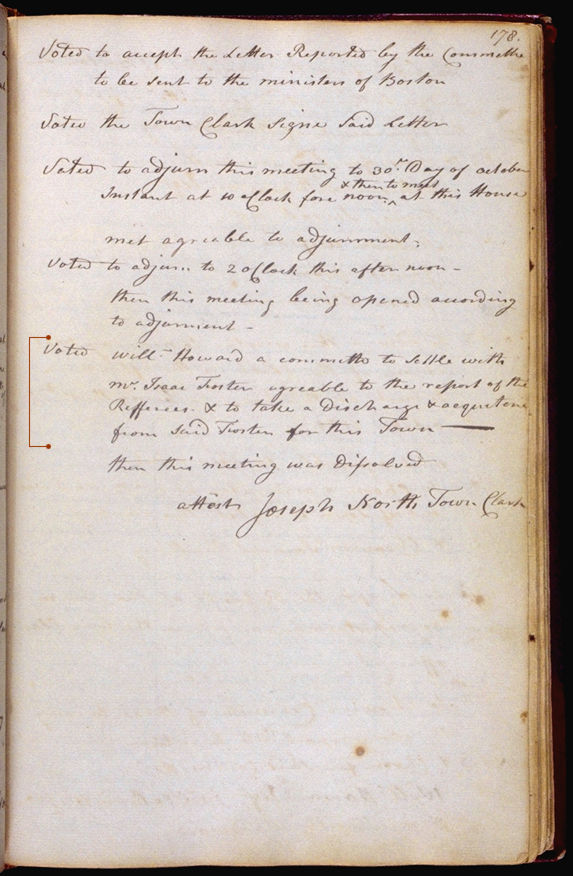 178.
Voted to accept the Letter Reported by the Committe
to be sent to the ministers of Boston
Voted the Town Clark Signe Said Letter
Voted to adjurn this meeting to 30th Day of october
& then to meet
Instant at 10 oClock fore noon ‸ at this House
met agreable to adjurnment,
Voted to adjurn to 2 oClock this after noon -
then this meeting being opened according
to adjurment -
Voted Willm Howard a committe to Settle with
mr. Isaac Foster agreable to the report of the
Refferees. & to take a Discharge & acquitene
from Said Foster for this Town —
then this meeting was Dissolved
attest Joseph North Town Clark